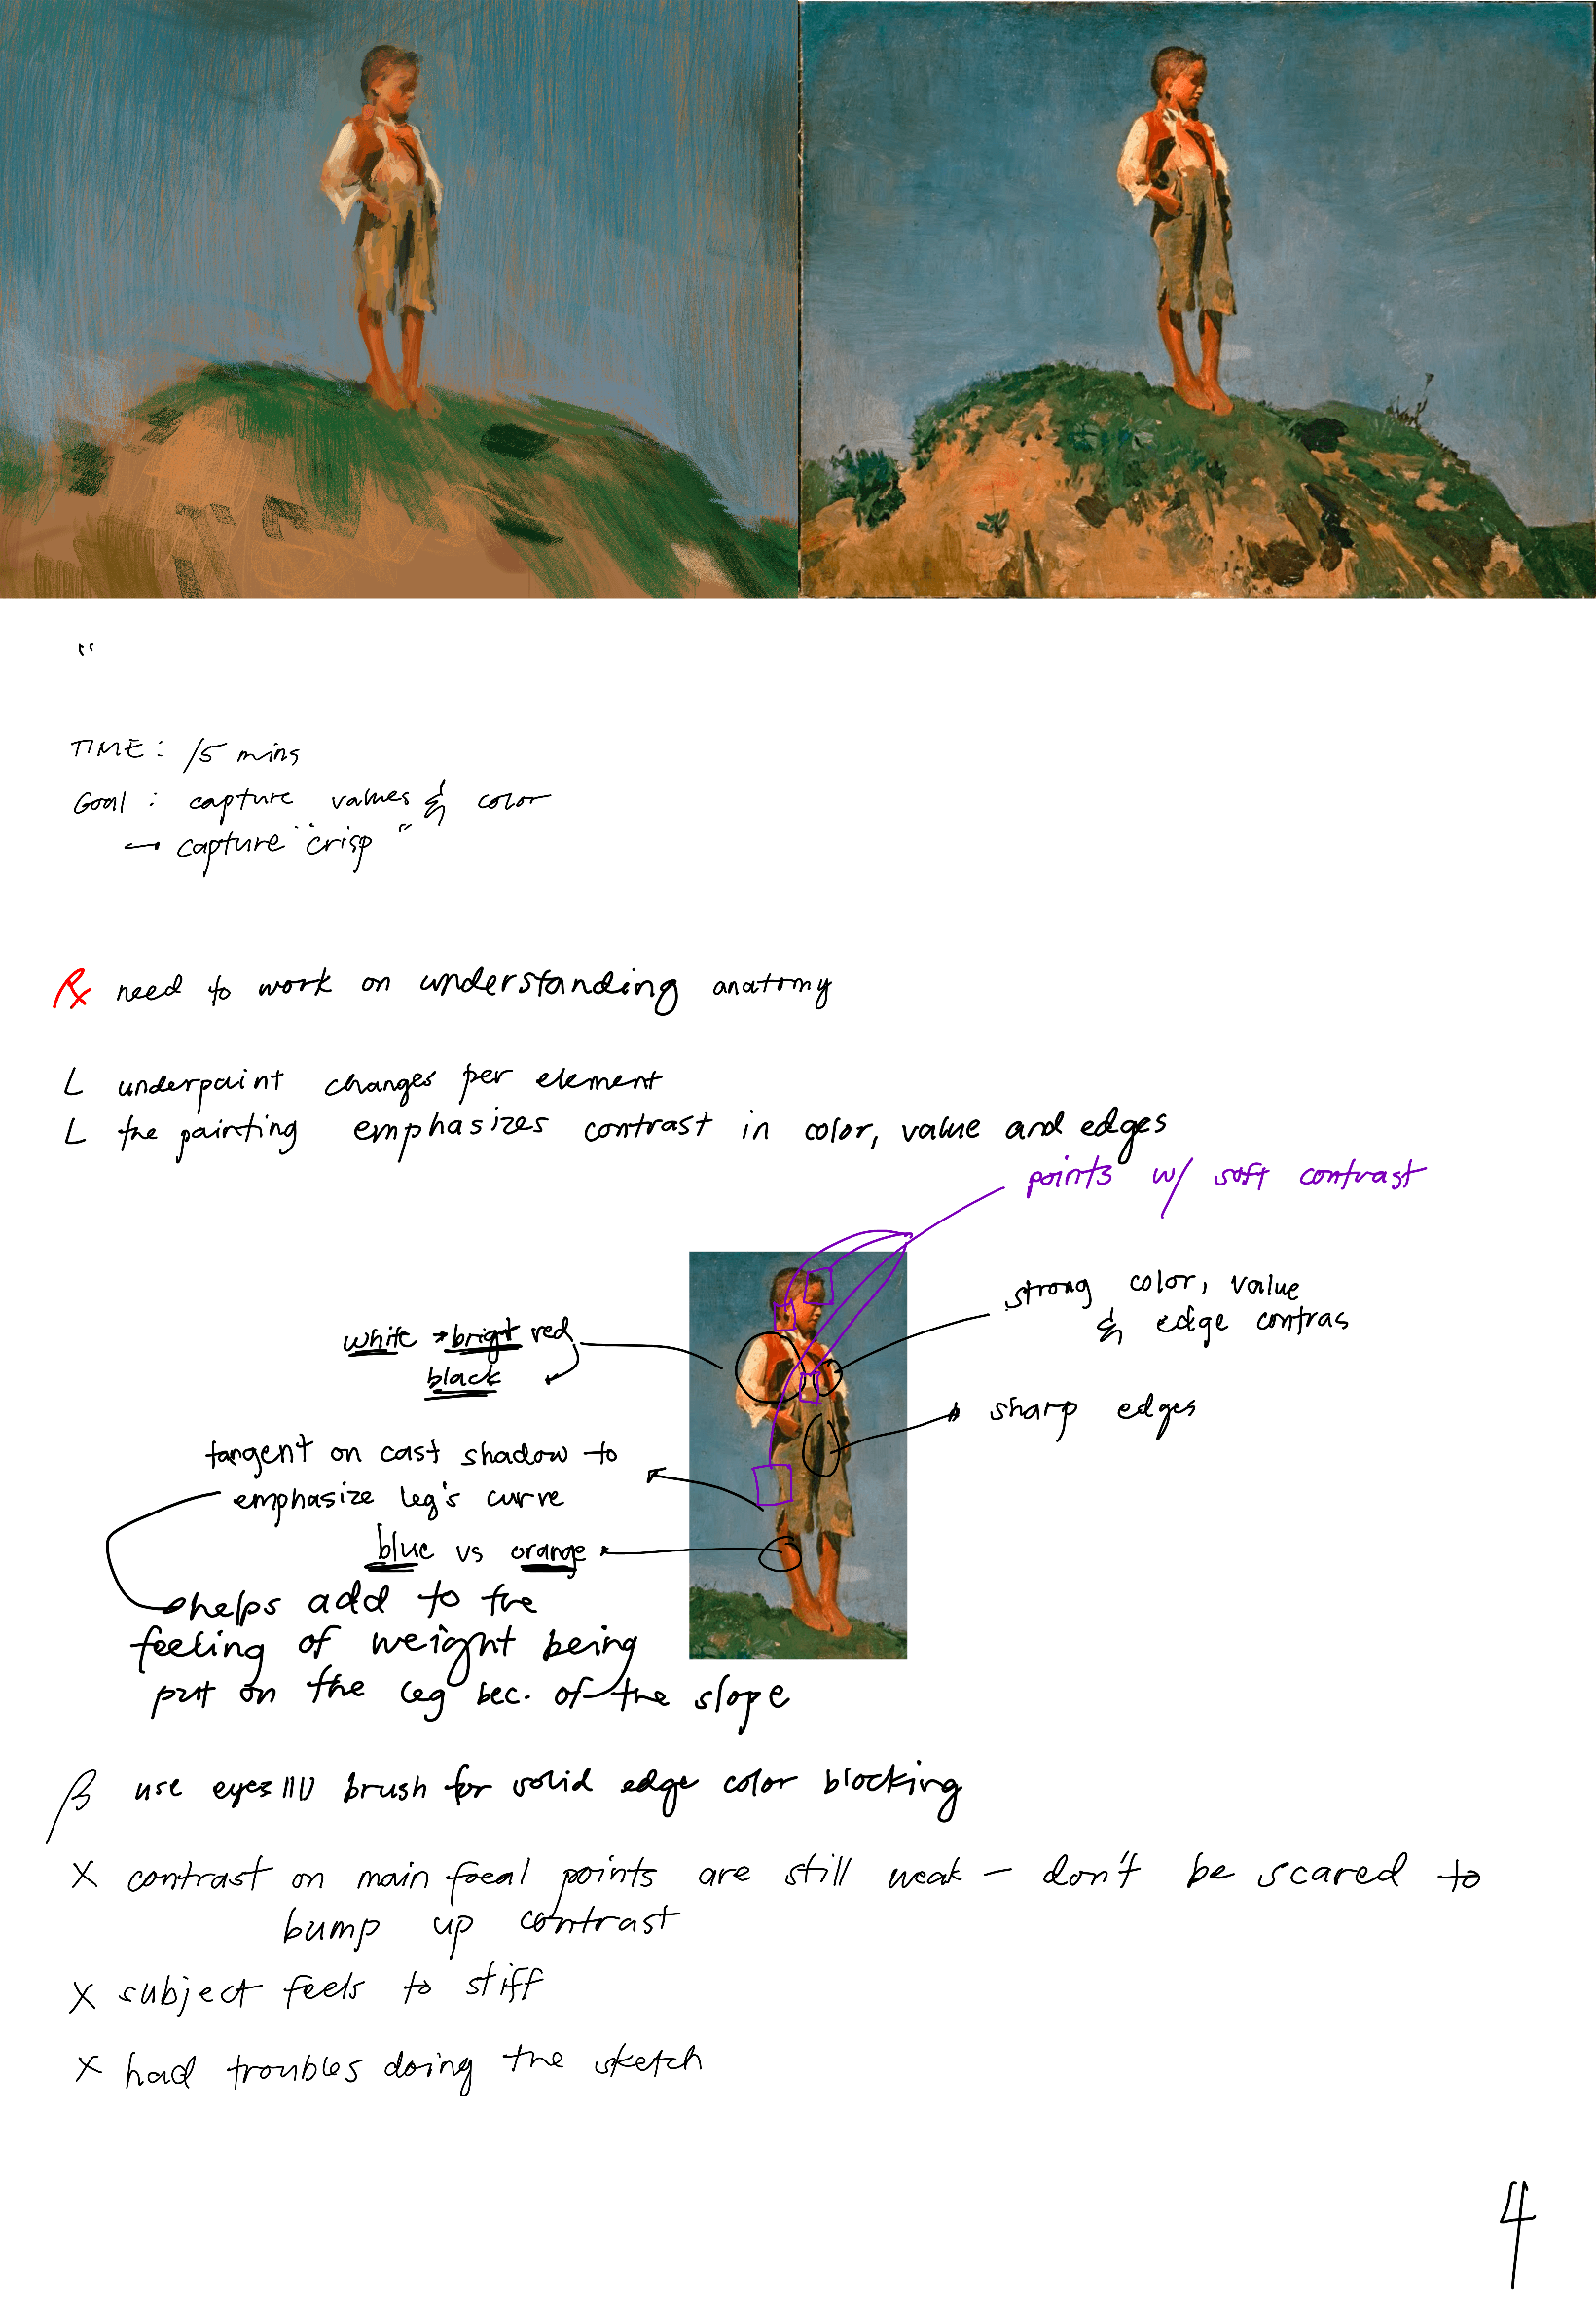 "
TIME: 15 mins
Goal: capture values & color
→ capture "crisp"
Rx need to work on understanding anatomy
L underpaint changes per element
L the painting emphasizes contrast in color, value and edges
points w/ soft contrast
strong color, value
& edge contras
white → brigt red
black
sharp edges
tangent on cast shadow to
emphasize leg's curve
blue vs orange
helps add to the
feeling of weight being
put on the leg bec. of the slope
β use brush for solid edge color blocking
X contrast on main focal points are still weak — don't be scared to
bump up contrast
X subject feels to stiff
X had troubles doing the sketch
4